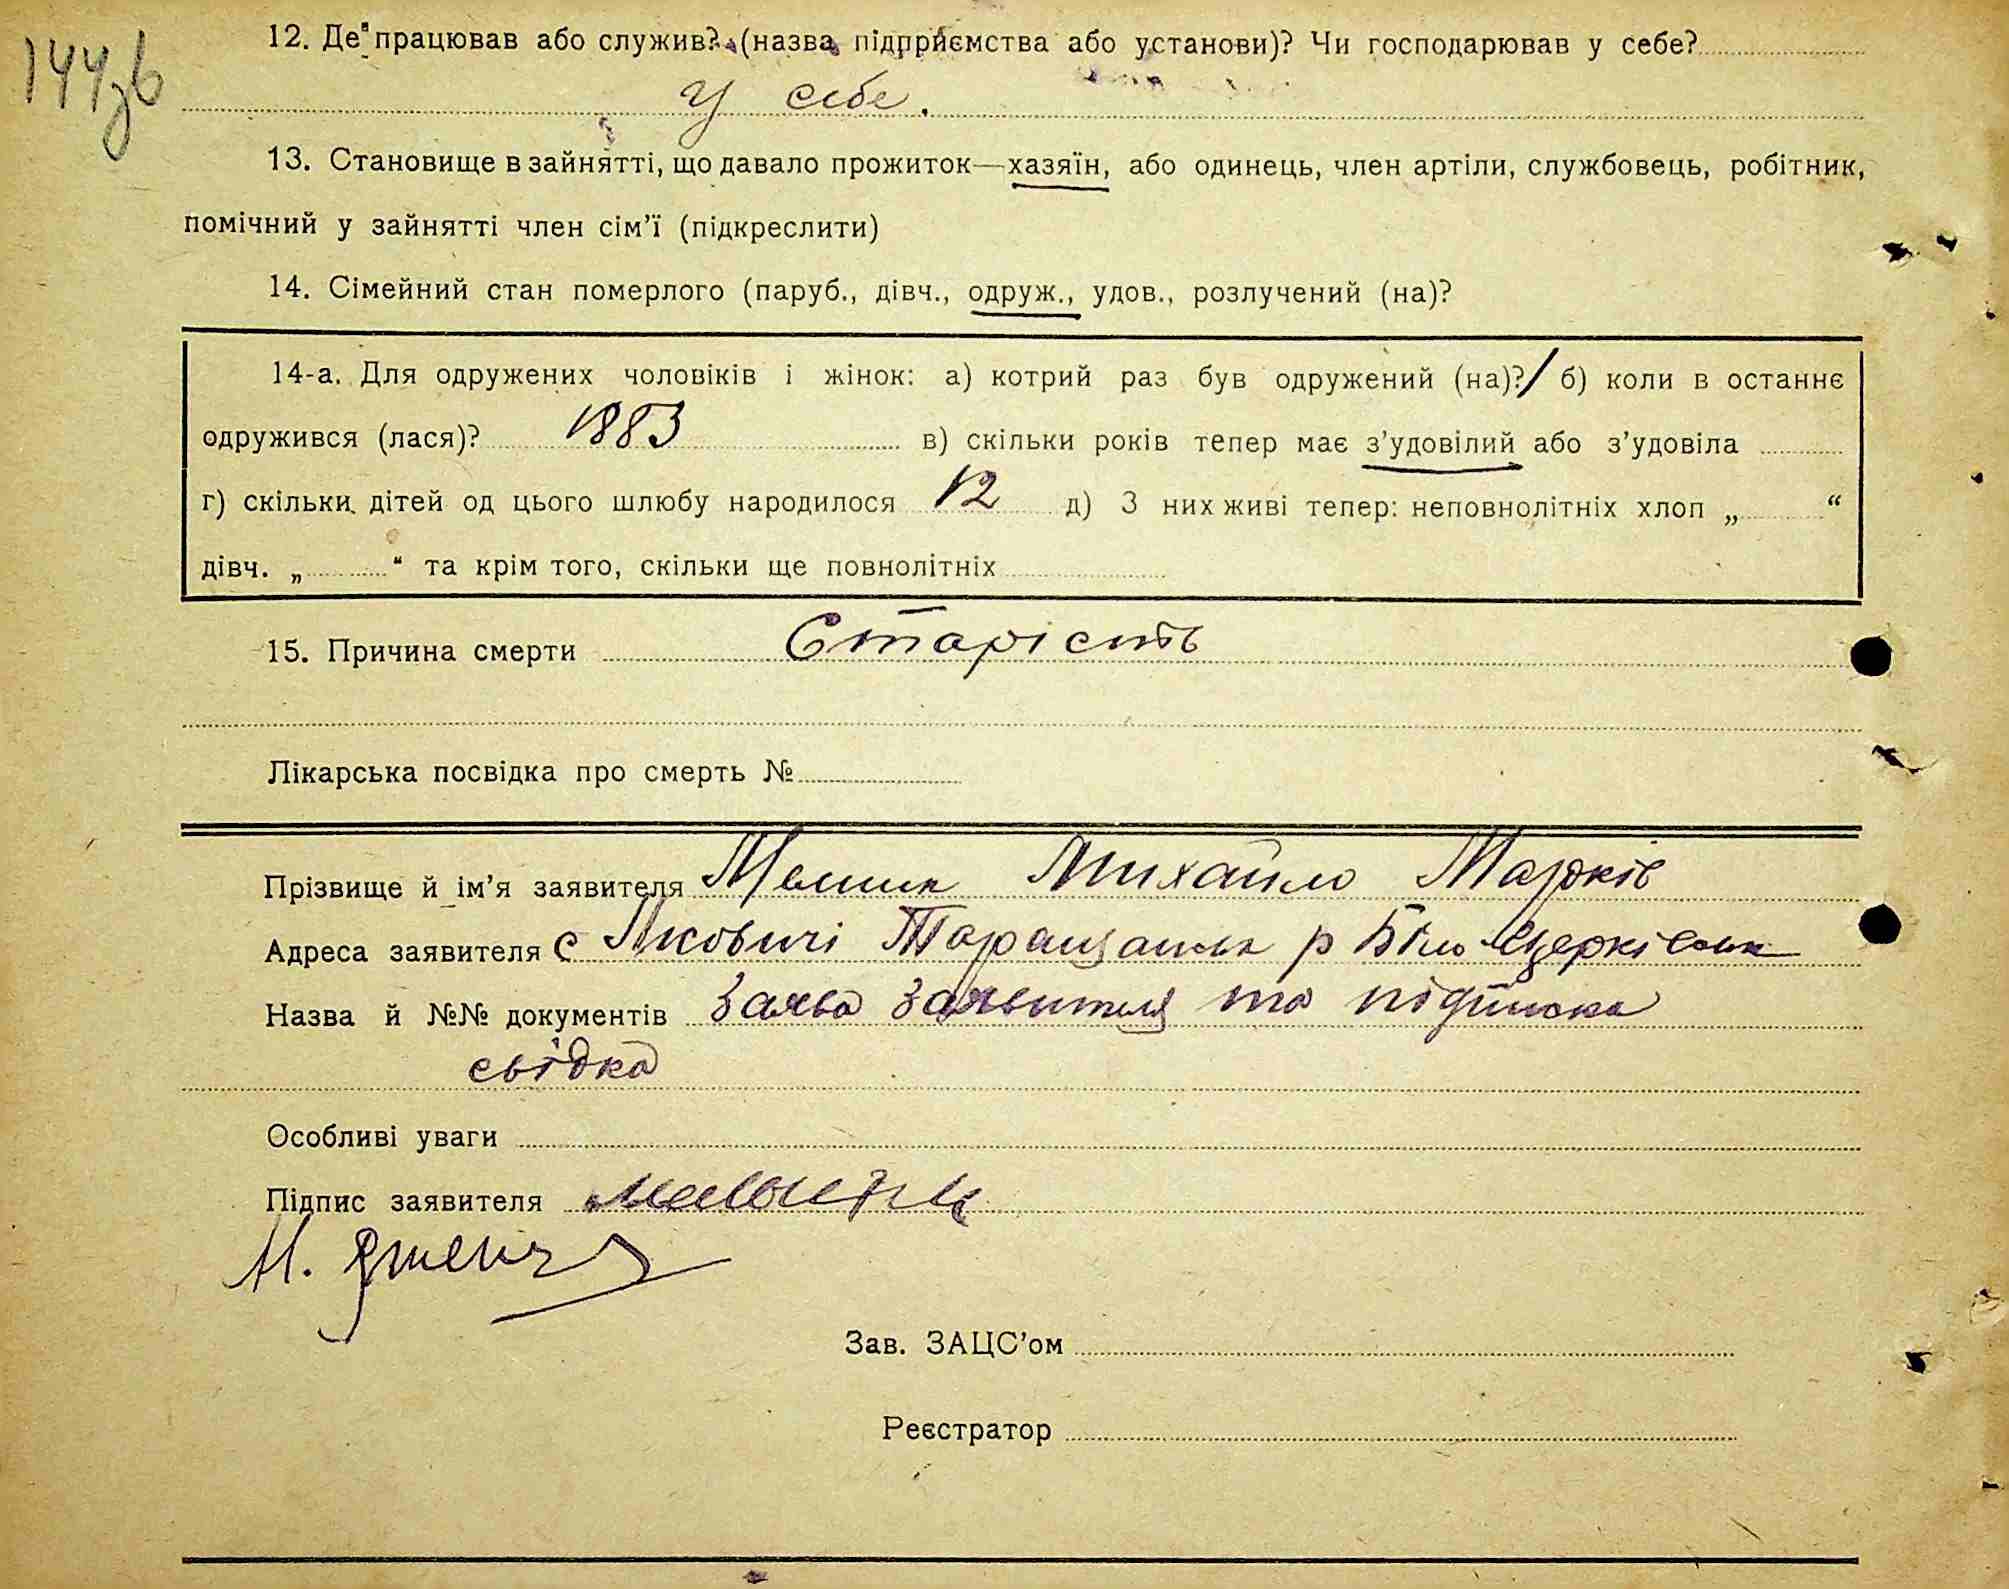 144зв
12. Де працював або служив? (назва підприємства або установи)? Чи господарював у себе?
У себе.
13. Становище в зайнятті, що давало прожиток—хазяїн, або одинець, член артіли, службовець, робітник,
помічний у зайнятті член сім’ї (підкреслити)
14. Сімейний стан померлого (паруб., дівч., одруж., удов., розлучений (на)?
14-а. Для одружених чоловіків і жінок: а) котрий раз був одружений (на)? / б) коли в останнє
одружився (лася)? 1883 в) скільки років тепер має з’удовілий або з’удовіла
г) скільки дітей од цього шлюбу народилося 12 д) З них живі тепер: неповнолітніх хлоп „ “
дівч. „ “ та крім того, скільки ще повнолітніх
15. Причина смерти Старість
Лікарська посвідка про смерть №
Прізвище й ім’я заявителя Мельник Михайло Марків
Адреса заявителя с Лісовичі Таращанськ р Біло Церківськ
Назва й №№ документів Заява заявителя та підписка
свідка
Особливі уваги
Підпис заявителя
М.
Зав. ЗАЦС’ом
Реєстратор